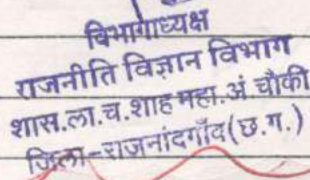 विभागाध्यक्ष
राजनीति विज्ञान विभाग
शास.ला.च.शाह महा.अं चौकी
जिला-राजनांदगाँव(छ.ग.)